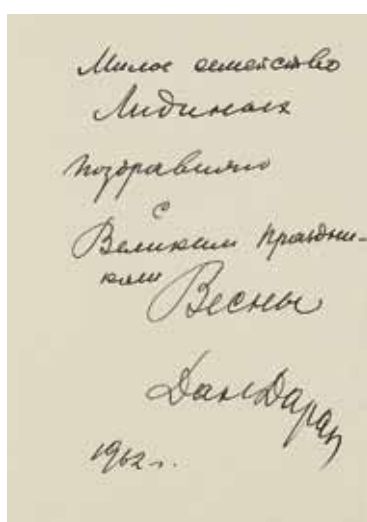 Милое семейство
Лидиных
поздравляю
с
Великим праздни-
ком
Весны
Дан Даран
1962 г.